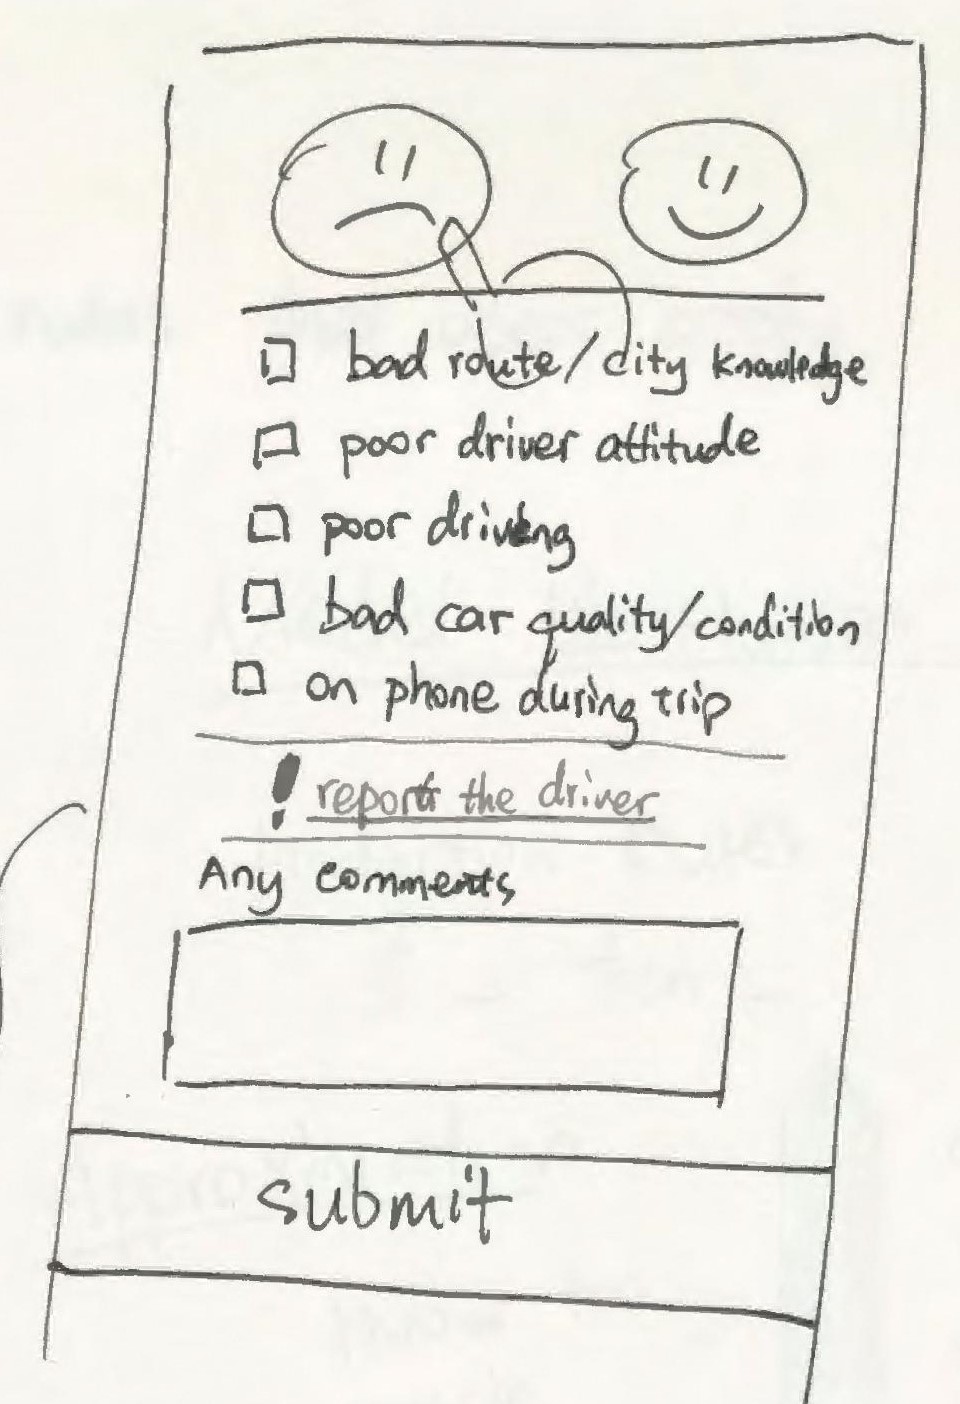 bad route/city knowledge
poor driver attitude
poor driving
bad car quality/condition
on phone during trip
! report the driver
Any comments
submit